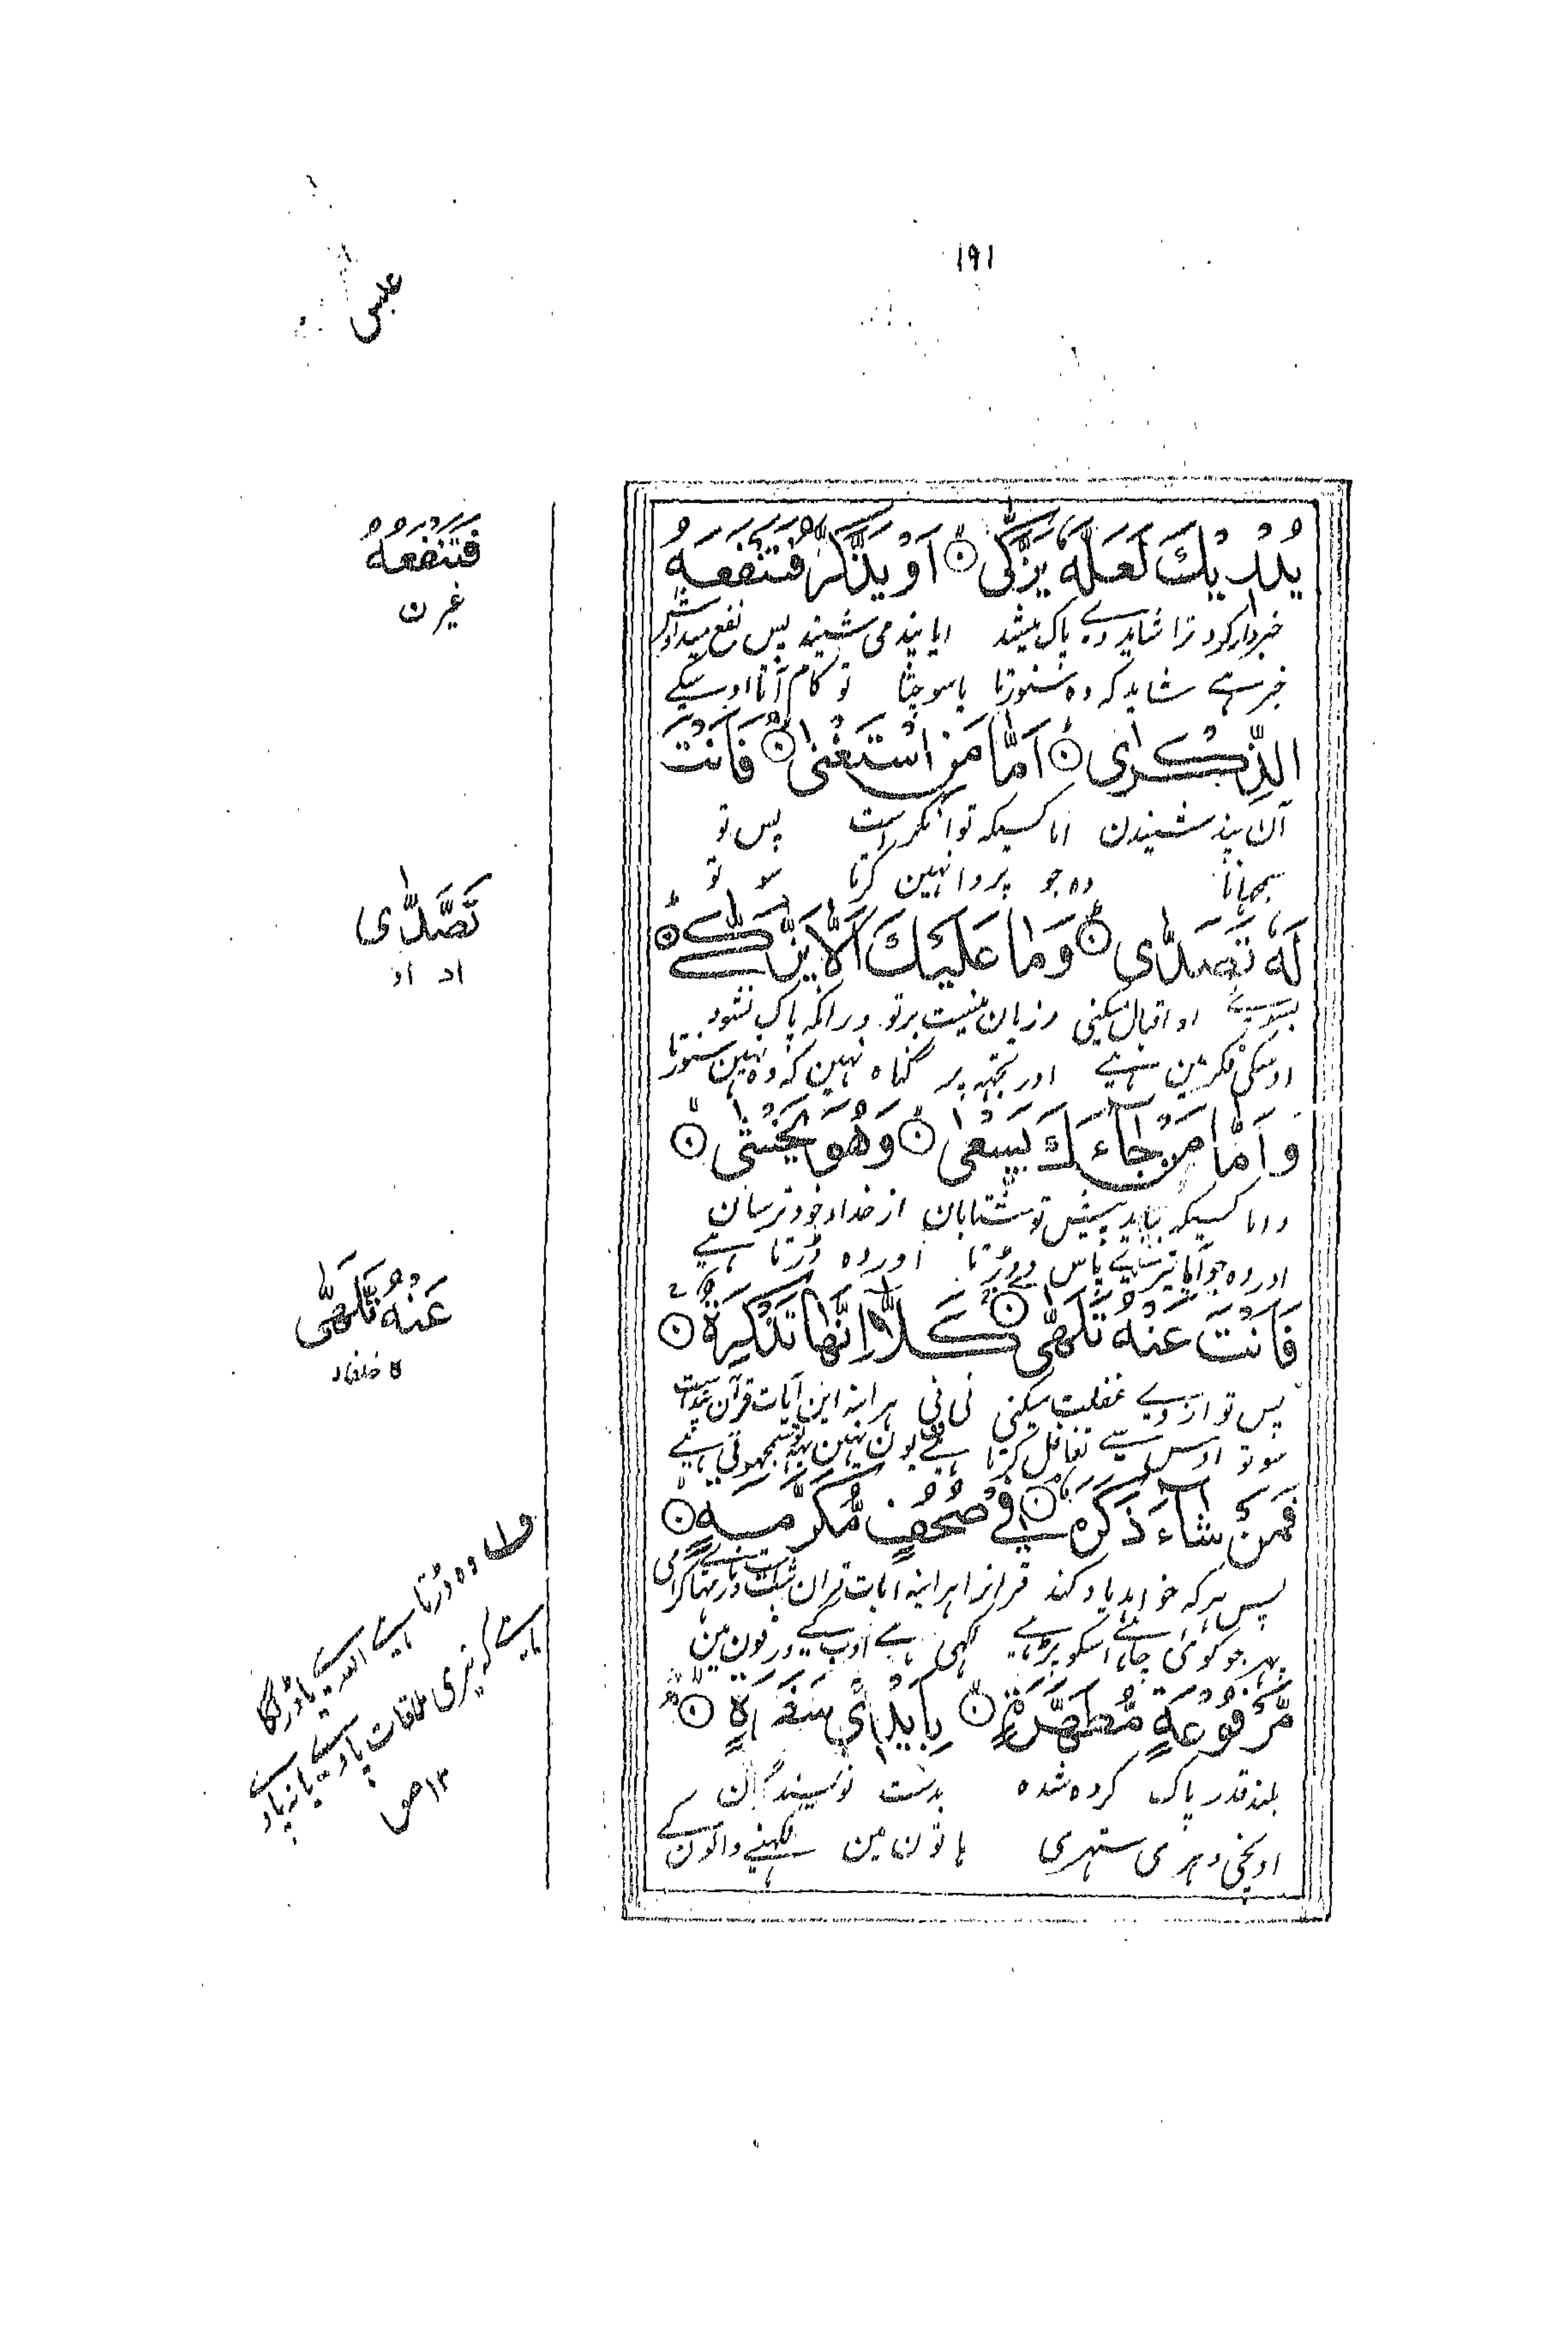 ۱۹۱
عبس
يُدْرِيْكَ لَعَلَّهٗ يَزَّكّٰى ۝ اَوْ يَذَّكَّرُ فَتَنْفَعَهُ
خبردار کرد ترا شاید وے پاک میشد یا پند می شنید پس نفع میداد
خبر ہے شاید کہ وہ سنورتا یا سوچتا تو کام آتا اوسکے
الذِّكْرٰى ۝ اَمَّا مَنِ اسْتَغْنٰى ۝ فَاَنْتَ
آن پند شنیدن اما کسیکہ توانگر است پس تو
سمجھانا وہ جو پروا نہین کرتا سو تو
لَهٗ تَصَدّٰى ۝ وَمَا عَلَيْكَ اَلَّا يَزَّكّٰے ۝
بسوے او اقبال میکنی و زیان نیست برتو در آنکہ پاک نشود
اوسکی فکر مین ہے اور تجھہ پر گناہ نہین کہ وہ نہین سنورتا
وَاَمَّا مَنْ جَآءَكَ يَسْعٰى ۝ وَهُوَ يَخْشٰى ۝
واما کسیکہ بیاید پیش تو شتابان از خداء خود ترسان
اور وہ جو آیا تیرے پاس دوڑتا اور وہ ڈرتا ہے
فَاَنْتَ عَنْهُ تَلَهّٰى ۝ كَلَّا اِنَّهَا تَذْكِرَةٌ ۝
پس تو از وے غفلت میکنی نی نی ہر اینہ این آیات قرآن پند است
سو تو اوس سے تغافل کرتا ہے یون نہین یہہ تو سمجھوتی ہے
فَمَنْ شَآءَ ذَكَرَهٗ ۝ فِيْ صُحُفٍ مُّكَرَّمَةٍ ۝
پس ہر کہ خواہد یاد کند قرآنرا ہر اینہ آیات قرآن ثبت است در
پہر جو کوئی چاہے اسکو پڑہے لکھی ہے ادب کے ورقون مین
مَّرْفُوْعَةٍ مُّطَهَّرَةٍ ۝ بِاَيْدِيْ سَفَرَةٍ ۝
بلند قدر پاک کردہ شدہ بدست نویسندگان
اونچی دہری ستہری ہاتون مین لکہنے والون کے
فَتَنْفَعَهُ
غیر ن
تَصَّدّٰى
اد او
عَنْهُ تَّلَهّٰى
ف۱ وہ ڈرتا ہے اللہ سے یا ڈر لگا
ہے کہ تیری ملاقات پاوے یا نہ پاوے
۱۲ ص